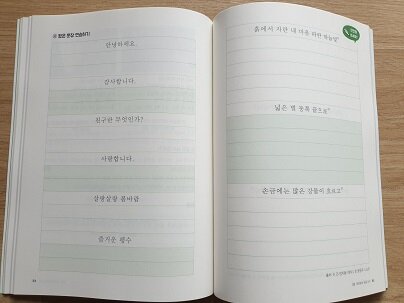 짧은 문장 연습하기
안녕하세요.
감사합니다.
친구란 무엇인가?
사랑합니다.
살랑살랑 봄바람
즐거운 행수
흙에서 자란 내 마음 파란 하늘빛
넓은 벌 동쪽 끝으로
손금에는 맑은 강물이 흐르고